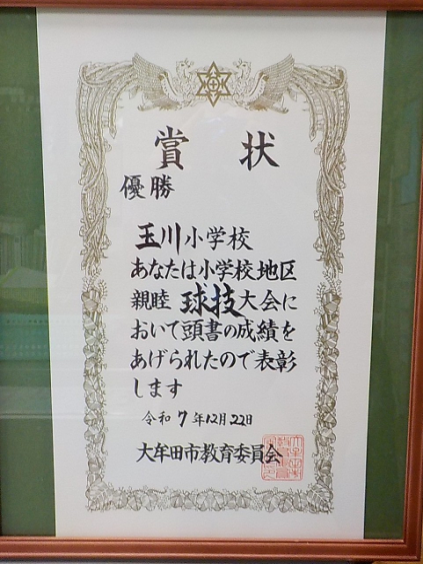 賞状
優勝
玉川小学校
あなたは小学校地区
親睦球技大会に
おいて頭書の成績を
あげられたので表彰
します
令和7年12月22日
大牟田市教育委員会